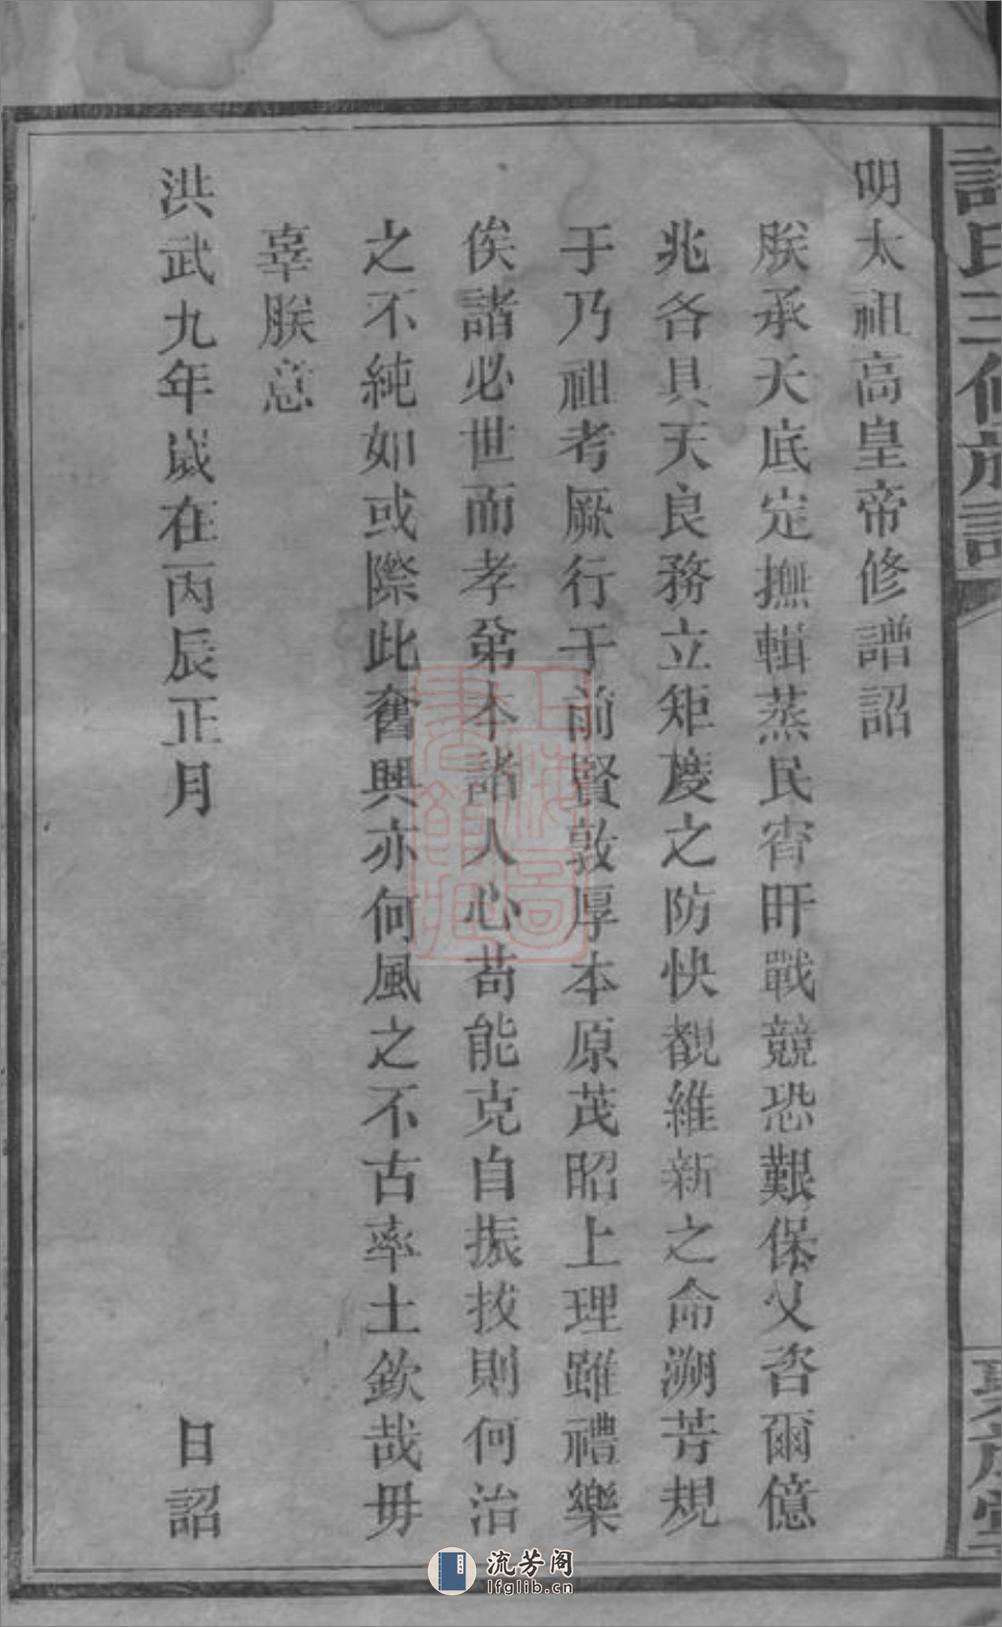 明太祖高皇帝修譜詔
朕承天底定撫輯蒸民宵旰戰兢恐艱保乂咨爾億
兆各具天良務立矩矱之防快覩維新之命溯芳規
于乃祖考厥行于前賢敦厚本原茂昭上理雖禮樂
俟諸必世而孝弟本諸人心苟能克自振拔則何治
之不純如或際此奮興亦何風之不古率土欽哉毋
辜朕意
洪武九年嵗在丙辰正月 日詔
氏三修族譜
聚族堂
上海圖書館藏
流芳阁
lfglib.cn